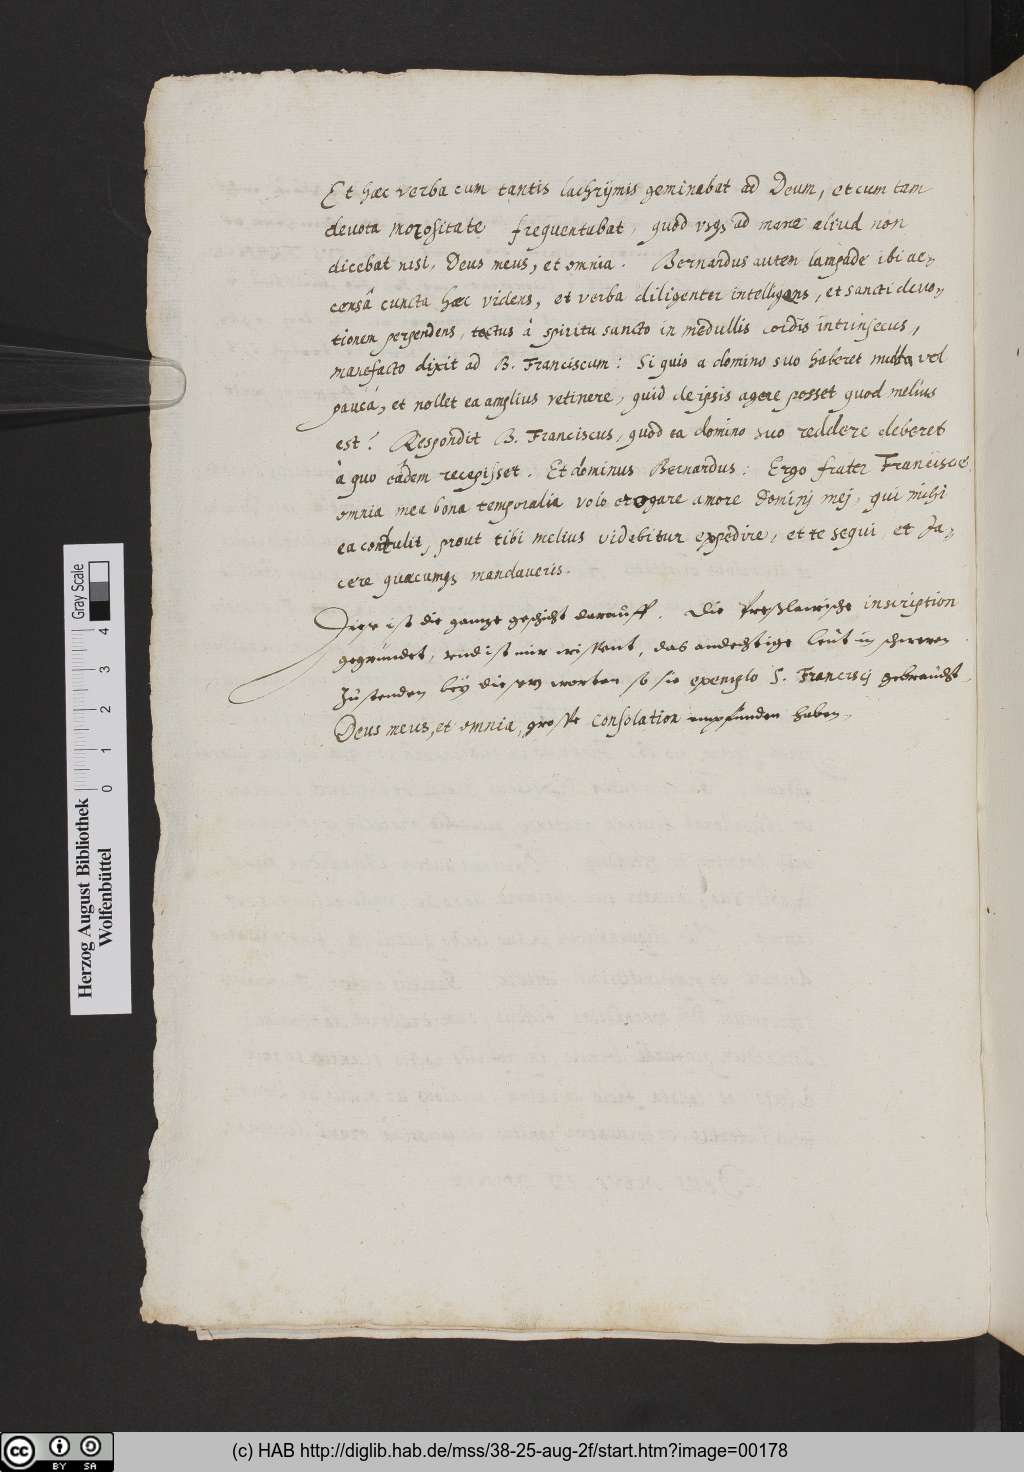 Et hæc verba cum tantis lachrÿmis geminabat ad Deum, et cum tam
devota morositate frequentabat, quod vsqs ad mane aliud non
dicebat nisi, Deus meus, et omnia. Bernardus autem lampade ibi ac,
censâ cuncta hæc videns, et verba diligenter intelligens, et sancti devo,
tionem perpendens, tactus à spiritu sancto in medullis cordis intrinsecus,
manefacto dixit ad B. Franciscum: Si quis a domino suo haberet multa vel
pauca, et nollet ea amplius retinere, quid de ipsis agere posset quod melius
est? Respondit B. Franciscus, quod ea domino suo reddere deberet
à quo eadem recepisset. Et dominus Bernardus: Ergo frater Francisce
omnia mea bona temporalia volo erogare amore Dominj mej, qui mihi
ea contulit, prout tibi melius videbitur expedire, et te sequi, et fa,
cere quæcumqs mandaveris.
ist die gantze geschicht darauff. Die inscription
gegründet, vnd ist mir wissent, das andechtige leüt in schweren
Zustenden beÿ diesen worten so sie exemplo S. Franciscj gebraucht
Deus meus, et omnia, grosse consolation empfunden haben.
Herzog August Bibliothek
Wolfenbüttel
Gray Scale
0 1 2 3 4
(c) HAB http://diglib.hab.de/mss/38-25-aug-2f/start.htm?image=00178
cc BY SA